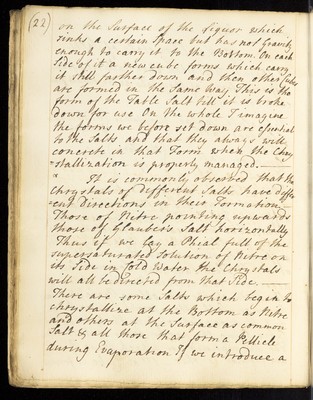 (22)
on the Surface of the Liquor which
sinks a certain space but has not Gravity
enough to carry it to the Bottom. On each
side of it a new cube forms which carry
it still farther down and then other Cubes
are formed in the same way This is the
form of the Table Salt till it is broke
down for use On the whole I imagine
the forms we before set down are essential
to the Salts and that they always will
concrete in that Form when the Chry
-stallization is properly managed.
It is commonly observed that the
Chrystals of different Salts have diffe
-ent Directions in their Formation.
Those of Nitre pointing upwards
those of Glauber's Salt horizontally
Thus if we lay a Phial full of the
supersaturated Solution of Nitre on
its Side in Cold Water the Chrystals
will all be directed from that Side.
There are some Salts which begin to
chrystallize at the Bottom as Nitre
and others at the Surface as common
Salt & all those that form a Pellicle
during Evaporation If we introduce a